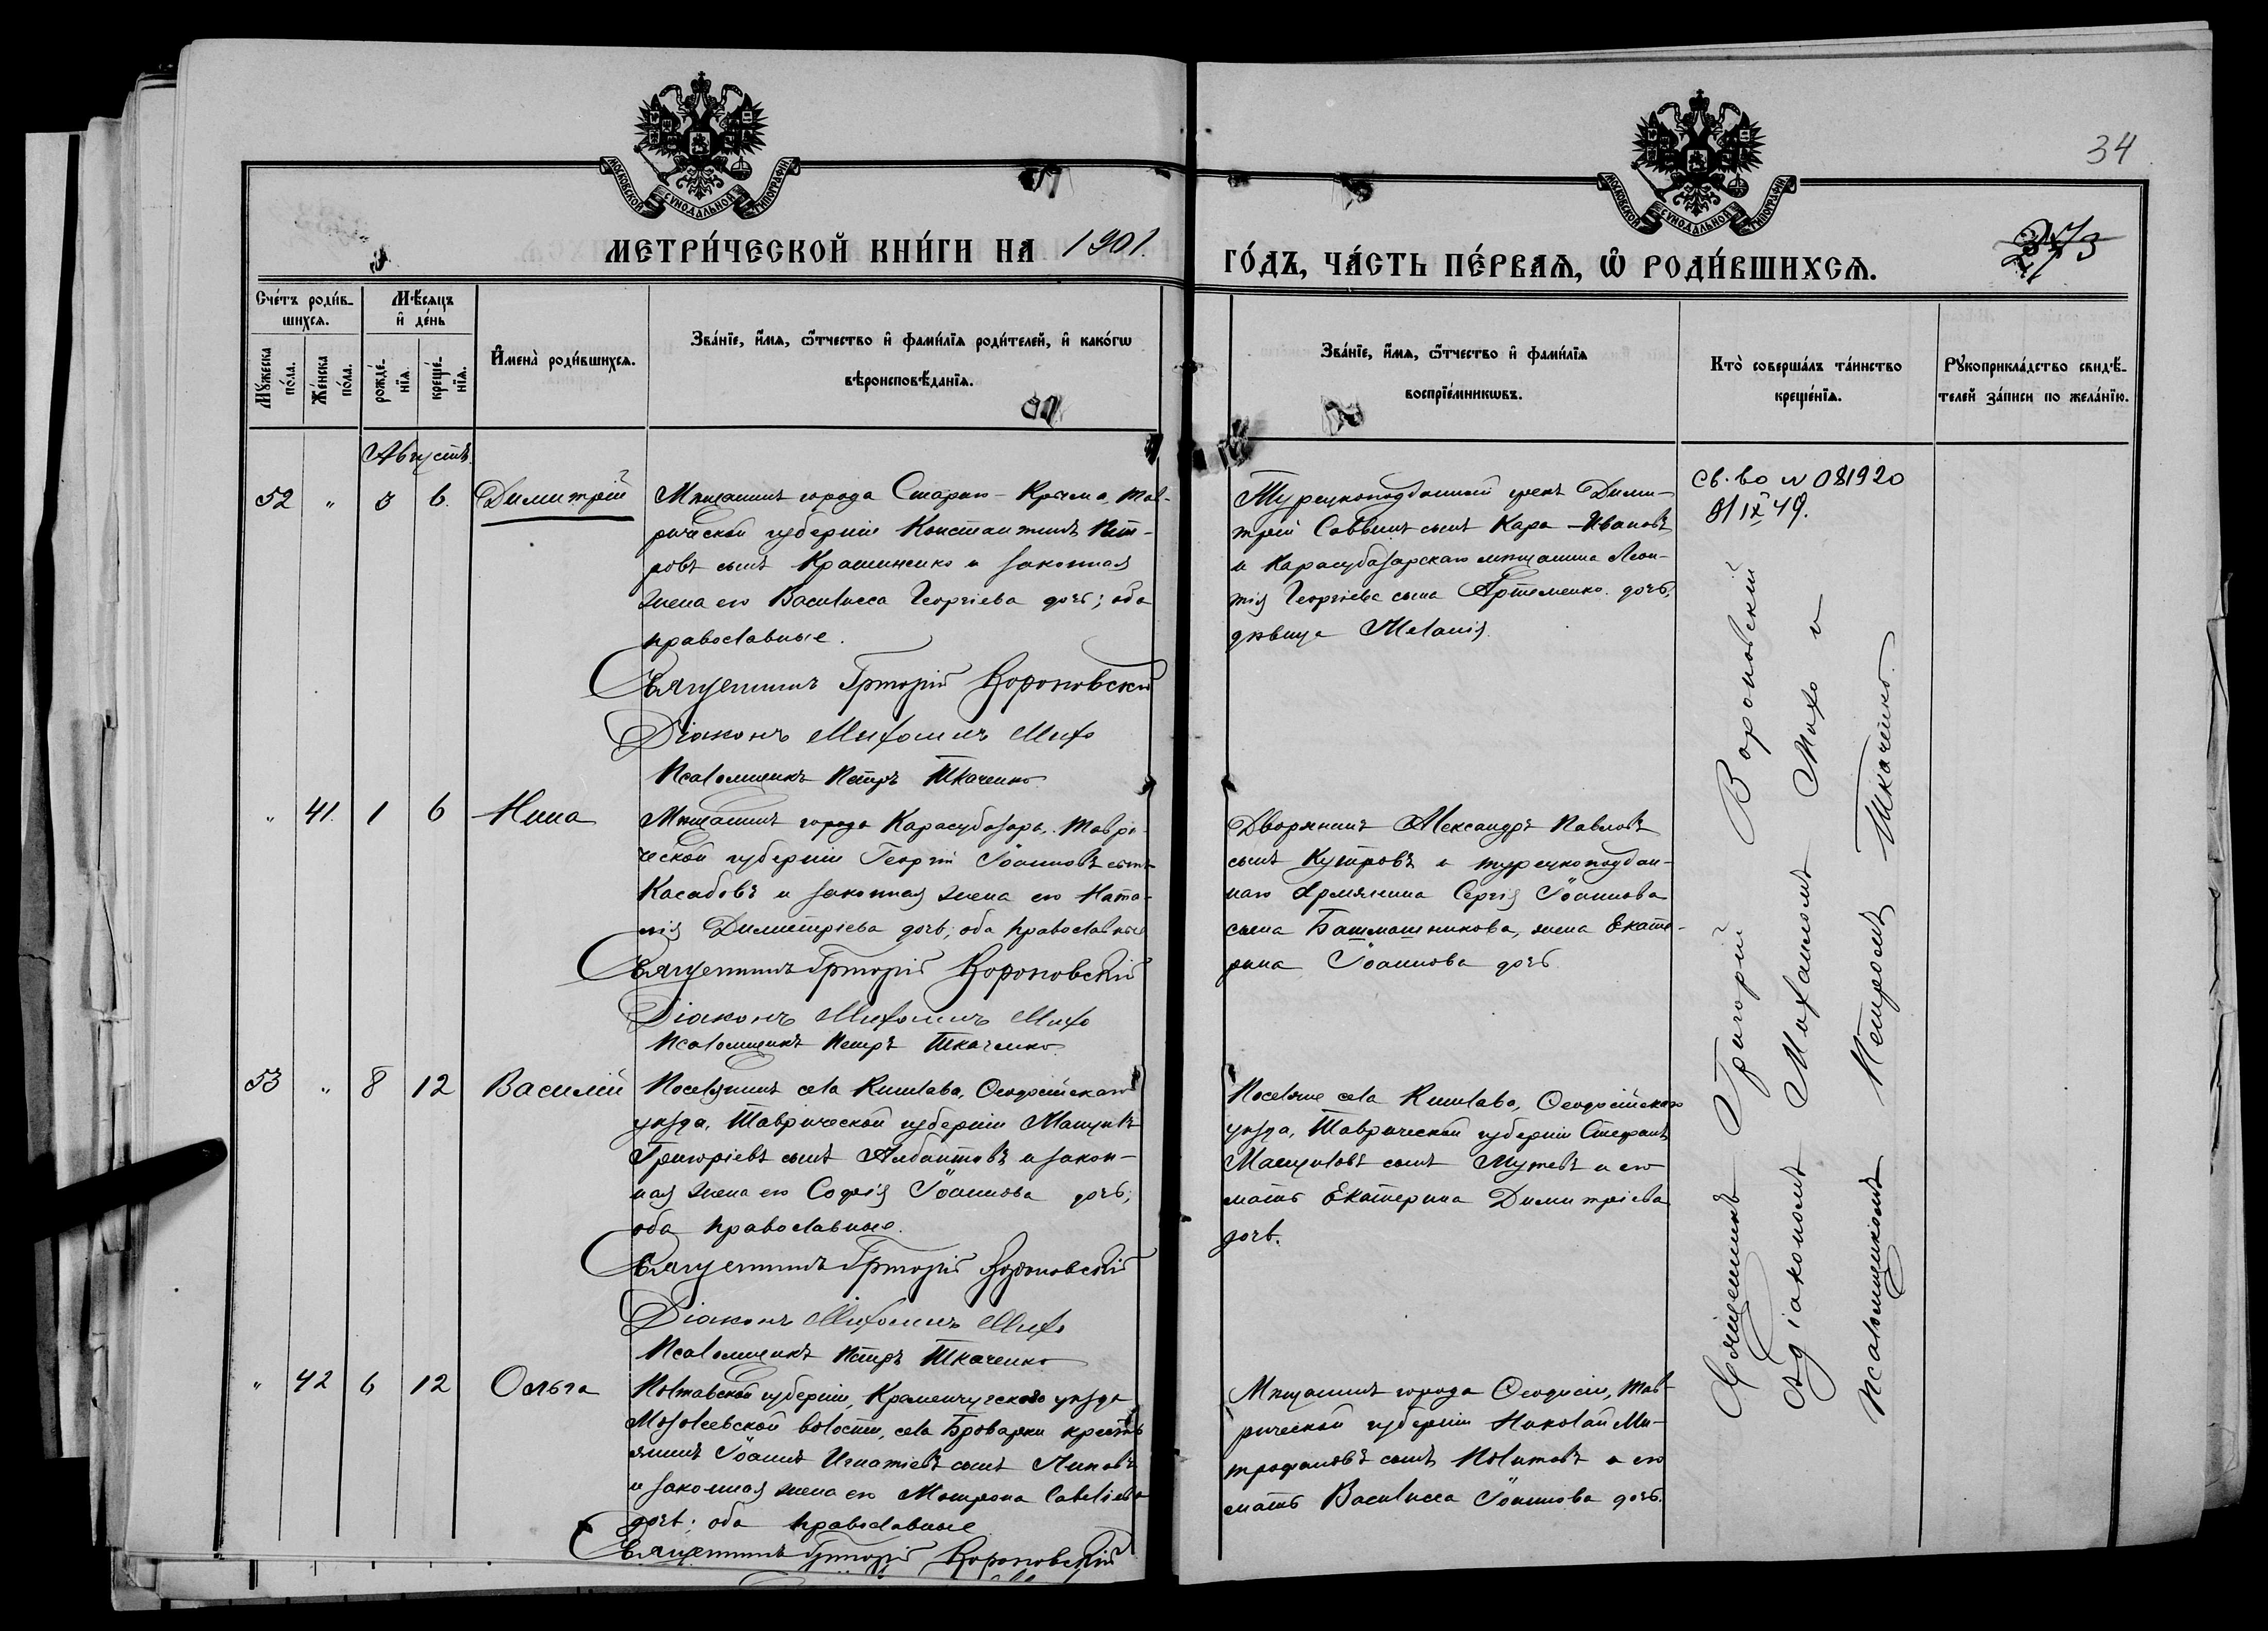 34
МОСКОВСКОЙ СѴНОДАЛЬНОЙ ТИПОГРАФІИ
МОСКОВСКОЙ СѴНОДАЛЬНОЙ ТИПОГРАФІИ
МЕТРИ́ЧЕСКОЙ КНИ́ГИ НА 1901.
ГО́ДЪ, ЧА́СТЬ ПЕ́РВАЯ, Ѡ РОДИ́ВШИХСЯ.
Сче́тъ роди́в-
шихся.
Мѣ́сяцъ
и де́нь
Му́жеска по́ла.
Же́нска по́ла.
рожде́-
нія.
креще́-
нія.
Имена̀ роди́вшихся.
Зва́ніе, и́мя, ѻ́тчество и фами́лія роди́телей, и како́гѡ
вѣроисповѣ́данія.
Зва́ніе, и́мя, ѻ́тчество и фами́лія
воспріе́мникѡвъ.
Кто̀ соверша́лъ та́инство
креще́нія.
Рукоприкла́дство свидѣ́-
телей за́писи по жела́нію.
Августъ.
52 " 3 6. Димитрій
Мѣщанинъ города Старого-Крыма, Тав-
рической губерніи Константинъ Пет-
ровъ сынъ Крашненко и законная
жена его Василисса Георгіева дочь; оба
православные.
Священникъ Григорій Вороновскій
Діаконъ Михаилъ Михо
Псаломщикъ Петръ Ткаченко
Турецкоподданный грекъ Дими-
трій Саввинъ сынъ Кара-Ивановъ
и Карасубазарскаго мѣщанина Леон-
тія Георгіева сына Артеменко дочь,
дѣвица Меланія.
Св. во N 081920
IX 49.
" 41. 1 6 Нина
Мѣщанинъ города Карасубазара, Таври-
ческой губерніи Георгій Іоанновъ сынъ
Касабовъ и законная жена его Ната-
лія Димитріева дочь; оба православные
Священникъ Григорій Вороновскій
Діаконъ Михаилъ Михо
Псаломщикъ Петръ Ткаченко
Дворянинъ Александръ Павловъ
сынъ Кутровъ и турецкоподдан-
наго Армянина Сергія Іоаннова
сына Башмашникова, жена Екате-
рина Іоаннова дочь
53 " 8 12 Василій
Поселянинъ села Кишлава, Ѳеодосійскаго
уѣзда, Таврической губерніи
Григоріевъ сынъ Албантовъ и закон-
ная жена его Софія Іоаннова дочь;
оба православные.
Священникъ Григорій Вороновскій
Діаконъ Михаилъ Михо
Псаломщикъ Петръ Ткаченко
Поселяне села Кишлава, Ѳеодосійскаго
уѣзда, Таврической губерніи Стефанъ
сынъ и его
мать Екатерина Димитріева
дочь.
" 42 6 12 Ольга
Полтавской губерніи, Кременчугскаго уѣзда
волости, села Броварки кресть
янинъ Іоаннъ Игнатіевъ сынъ Липовъ
и законная жена его Матрона Савеліева
дочь; оба православные
Священникъ Григорій Вороновскій
Мѣщанинъ города Ѳеодосіи, Тав-
рической губерніи Николай Ми-
трофановъ сынъ Политовъ и его
мать Василисса Іоаннова дочь.
Священникъ Григорій Вороновскій
съ діакономъ Михаиломъ Михо и
псаломщикомъ Петромъ Ткаченко.